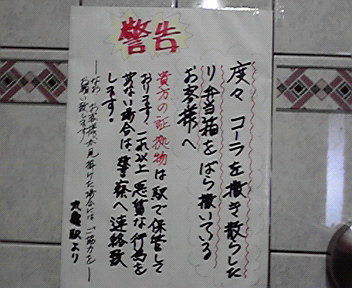 警告
度々 コーラを撒き散らした
り弁当箱をばら撒いている
お客様へ
貴方の証拠物は駅で保管して
おります！これ以上悪質な行為を
止ない場合は警察へ連絡致
します。
なお、お客様が見掛けた場合には、ご協力を
お願い致します！
丸亀駅より